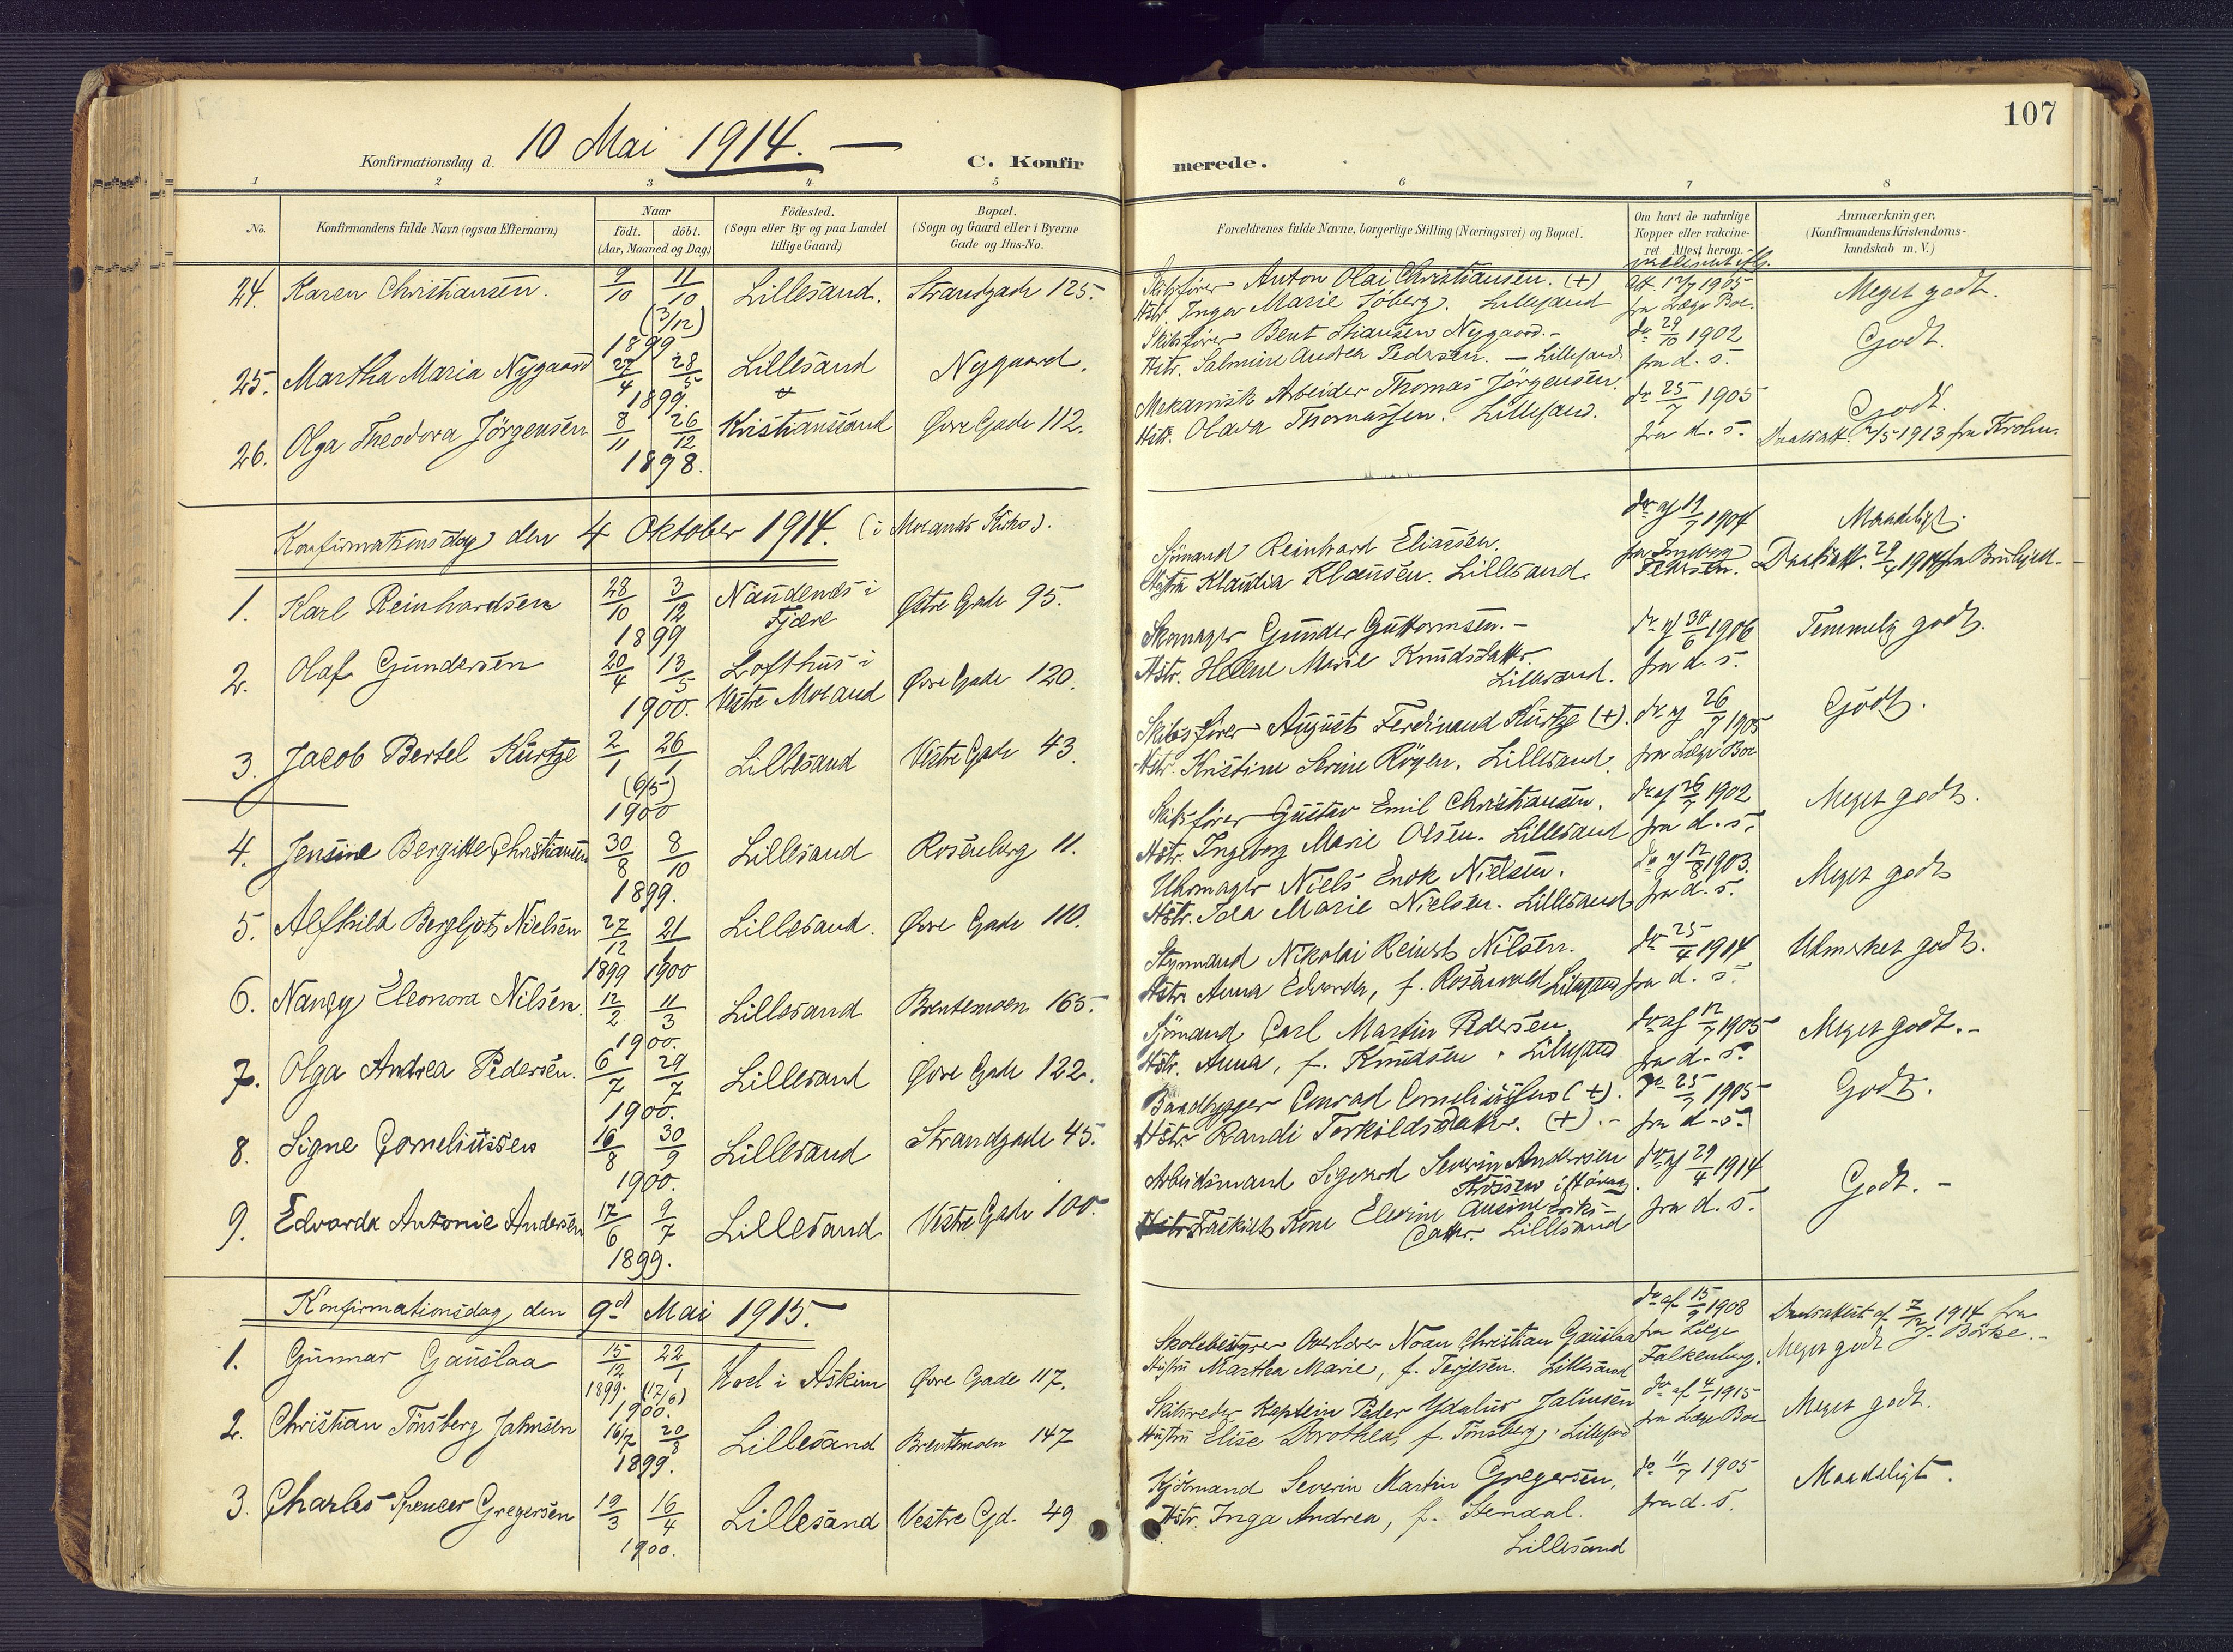 107
Konfirmationsdag d. 10 Mai 1914. —
C. Konfirmerede.
1 2 3 4 5 6 7 8
No.
Konfirmandens fulde Navn (ogsaa Efternavn)
Naar
födt. döbt.
(Aar, Maaned og Dag)
Födested.
(Sogn eller By og paa Landet
tillige Gaard)
Bopæl.
(Sogn og Gaard eller i Byerne
Gade og Hus-No.
Forældrenes fulde Navne, borgerlige Stilling (Næringsvei) og Bopæl.
Om havt de naturlige
Kopper eller vakcine-
ret. Attest herom.
Anmærkninger.
(Konfirmandens Kristendoms-
kundskab m. V.)
24. Karen Christiansen. 9/10 11/10 (3/12) 1899 Lillesand. Strandgade 125.
Skibsfører Anton Olai Christiansen. (+)
Hstr. Inger Marie Söberg. Lillesand
att 12/7 1905
fra Læge Boe.
Meget godt.
25. Martha Maria Nygaard 27/4 28/5 1899. Lillesand Nygaard.
Skibsfører Bent Stiansen Nygaard.-
Hstr. Salmine Andrea Pedersen. — Lillesand
do 29/10 1902
fra d. s.
Godt.
26. Olga Theodora Jörgensen 8/11 26/12 1898. Kristianssand Øvre Gade 112.
Mekanisk Arbeider Thomas Jörgensen.
Hstr. Olava Thomassen. Lillesand.
do 25/7 1905
fra d. s.
Godt.
Daabsatt. 2/5 1913 fra Krohn.
Konfirmationsdag den 4 Oktober 1914. (i Moland Kirke).
1. Karl Reinhardsen 28/10 3/12 1899 Naudenes i
Fjære Østre Gade 95.
Sjömand Reinhard Eliassen.
Hustru Klaudia Klausen. Lillesand.
do af 12/7 1904
fra Ingeborg
Pedersen.
Maadeligt.
Daabsatt. 29/4 1914 fra
2. Olaf Gundersen 20/4 13/5 1900. Lofthus i
Vestre Moland Øvre Gade 120.
Skomager Gunder Guttormsen.-
Hstr. Helene Marie Knudsdattr.
Lillesand.
do af 30/6 1906
fra d. s.
Temmelig godt.
3. Jacob Bertel Kurtze 2/1 26/1 (6/5) 1900 Lillesand Vestre Gade 43.
Skibsfører August Ferdinand Kurtze (+).
Hstr. Kristine Serine Röyen. Lillesand.
do af 26/7 1905
fra Læge Boe
Godt.
4. Jensine Bergitte Christiansen 30/8 8/10 1899. Lillesand Rosenberg 11.
Skibsfører Gustav Emil Christiansen.
Hstr. Ingeborg Marie Olsen. Lillesand
do af 26/7 1902
fra d. s.
Meget godt.
5. Alfhild Bergljot Nielsen 27/12 1899 21/1 1900 Lillesand. Øvre Gade 110.
Uhrmager Niels Enok Nielsen.
Hstr. Ida Marie Nielsen. Lillesand
do af 12/8 1903.
fra d. s.
Meget godt
6. Nancy Eleonora Nilsen. 12/2 11/3 1900. Lillesand Brentemoen 165.
Styrmand Nikolai Reinert Nilsen.
Hstr. Anna Edvarda, f. Rosenvold Lillesand
do 25/4 1914
fra d. s.
Udmerket godt.
7. Olga Andrea Pedersen. 6/7 29/7 1900. Lillesand Øvre Gade 122.
Sjömand Carl Martin Pedersen
Hstr. Anna, f. Knudsen. Lillesand
do af 12/7 1905
fra d. s.
Meget godt.-
8. Signe Corneliussen 16/8 30/9 1900. Lillesand Strandgade 45.
Baadbygger Conrad Corneliussen (+).
Hstr. Randi Torkildsdattr. (+).-
do 25/7 1905
fra d. s.
Godt.
9. Edvarda Antonie Andersen 17/6 9/7 1899. Lillesand Vestre Gade 100.
Arbeidsmand Sigvard Severin Andersen
Fraskilt Kone Elevine Ausine Eriks-
dattr. Lillesand
do af 29/4 1914
fra d. s.
Godt. -
Konfirmationsdag den 9d Mai 1915.
1. Gunnar Gauslaa 15/12 1899. 22/1 (17/6) 1900. Hoel i Askim Øvre Gade 117.
Skolebestyrer Overlærer Noan Christian Gauslaa
Hustru Martha Marie, f. Terjesen. Lillesand
do af 15/9 1908
fra Læge
Falkenberg.
Daabsattest af 7/12 1914 fra
J. Börke.-
Meget godt
2. Christian Tönsberg Jahnsen 16/7 20/8 1899. Lillesand Brentemoen 147
Skibsreder Kaptein Peder Ydalius Jahnsen
Hustru Elise Dorothea, f. Tönsberg. Lillesand
do af 4/1 1915
fra Læge Boe
Meget godt.
3. Charles Spencer Gregersen 19/3 16/4 1900. Lillesand Vestre Gd. 49
Kjöbmand Severin Martin Gregersen,
Hstr. Inga Andrea, f. Stendal.
Lillesand
do 11/7 1905
fra d. s.
Maadeligt.